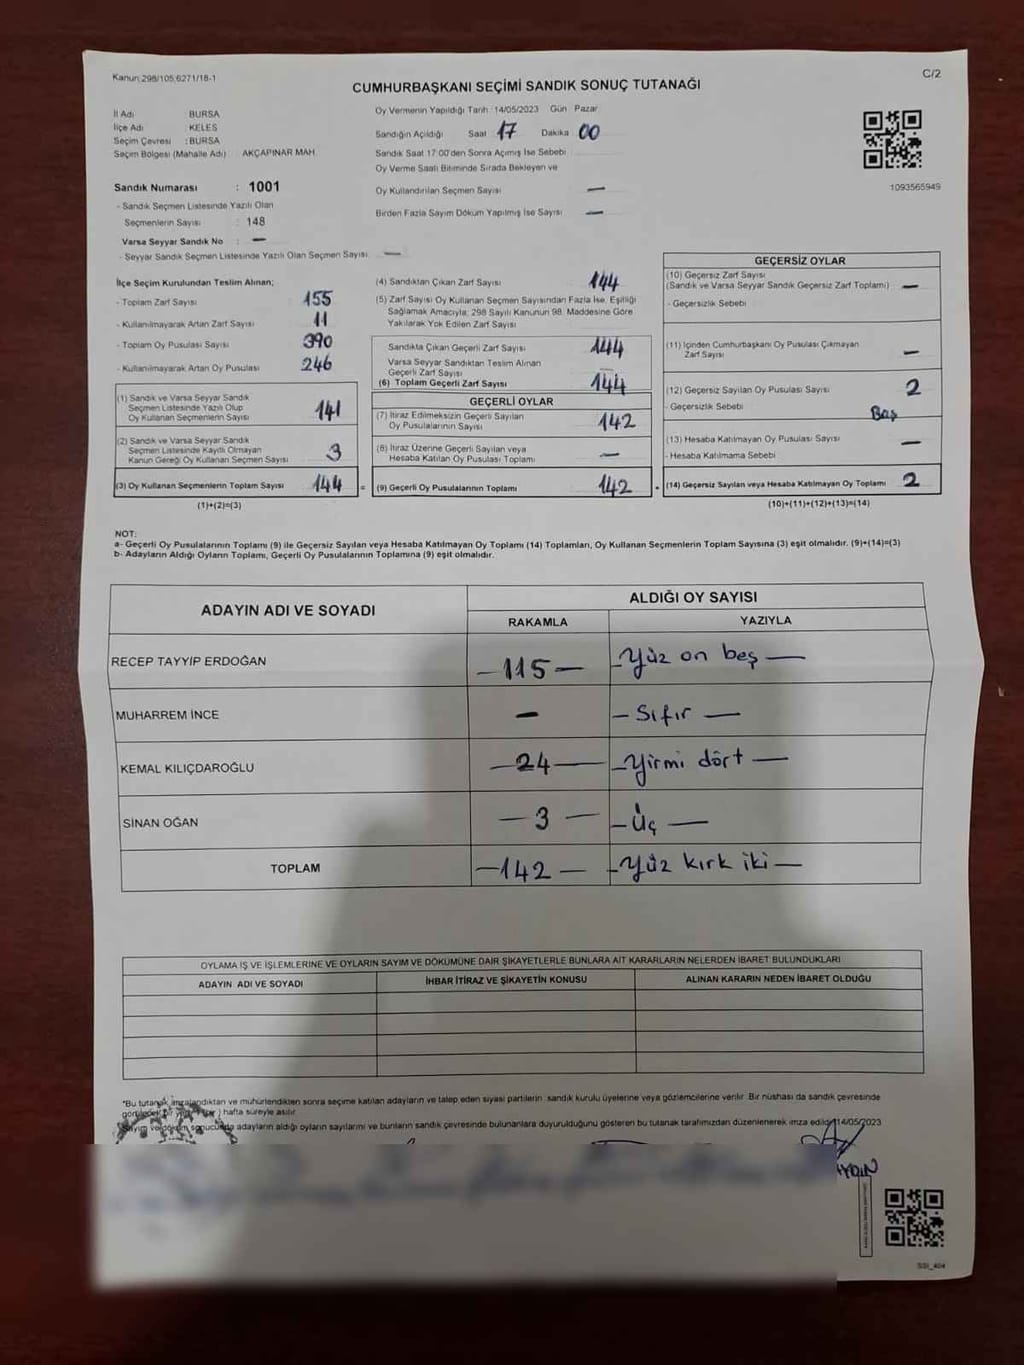 Kanun:298/105;6271/18-1
C/2
CUMHURBAŞKANI SEÇİMİ SANDIK SONUÇ TUTANAĞI
İl Adı : BURSA
İlçe Adı : KELES
Seçim Çevresi : BURSA
Seçim Bölgesi (Mahalle Adı) : AKÇAPINAR MAH.
Oy Vermenin Yapıldığı Tarih : 14/05/2023 Gün : Pazar
Sandığın Açıldığı Saat 17 Dakika 00
Sandık Saat 17:00'den Sonra Açılmış İse Sebebi
Oy Verme Saati Bitiminde Sırada Bekleyen ve
Oy Kullandırılan Seçmen Sayısı —
Birden Fazla Sayım Döküm Yapılmış İse Sayısı —
1093565949
Sandık Numarası : 1001
- Sandık Seçmen Listesinde Yazılı Olan
Seçmenlerin Sayısı : 148
Varsa Seyyar Sandık No : —
- Seyyar Sandık Seçmen Listesinde Yazılı Olan Seçmen Sayısı : —
İlçe Seçim Kurulundan Teslim Alınan;
- Toplam Zarf Sayısı 155
- Kullanılmayarak Artan Zarf Sayısı 11
- Toplam Oy Pusulası Sayısı 390
- Kullanılmayarak Artan Oy Pusulası 246
(1) Sandık ve Varsa Seyyar Sandık
Seçmen Listesinde Yazılı Olup
Oy Kullanan Seçmenlerin Sayısı 141
(2) Sandık ve Varsa Seyyar Sandık
Seçmen Listesinde Kayıtlı Olmayan
Kanun Gereği Oy Kullanan Seçmen Sayısı 3
(3) Oy Kullanan Seçmenlerin Toplam Sayısı 144 =
(1)+(2)=(3)
(4) Sandıktan Çıkan Zarf Sayısı 144
(5) Zarf Sayısı Oy Kullanan Seçmen Sayısından Fazla İse, Eşitliği
Sağlamak Amacıyla; 298 Sayılı Kanunun 98. Maddesine Göre
Yakılarak Yok Edilen Zarf Sayısı
Sandıkta Çıkan Geçerli Zarf Sayısı 144
Varsa Seyyar Sandıktan Teslim Alınan
Geçerli Zarf Sayısı —
(6) Toplam Geçerli Zarf Sayısı 144
GEÇERLİ OYLAR
(7) İtiraz Edilmeksizin Geçerli Sayılan
Oy Pusulalarının Sayısı 142
(8) İtiraz Üzerine Geçerli Sayılan veya
Hesaba Katılan Oy Pusulası Toplamı —
(9) Geçerli Oy Pusulalarının Toplamı 142 +
GEÇERSİZ OYLAR
(10) Geçersiz Zarf Sayısı
(Sandık ve Varsa Seyyar Sandık Geçersiz Zarf Toplamı) —
- Geçersizlik Sebebi
(11) İçinden Cumhurbaşkanı Oy Pusulası Çıkmayan
Zarf Sayısı —
(12) Geçersiz Sayılan Oy Pusulası Sayısı 2
- Geçersizlik Sebebi Boş
(13) Hesaba Katılmayan Oy Pusulası Sayısı —
- Hesaba Katılmama Sebebi
(14) Geçersiz Sayılan veya Hesaba Katılmayan Oy Toplamı 2
(10)+(11)+(12)+(13)=(14)
NOT:
a- Geçerli Oy Pusulalarının Toplamı (9) ile Geçersiz Sayılan veya Hesaba Katılmayan Oy Toplamı (14) Toplamları, Oy Kullanan Seçmenlerin Toplam Sayısına (3) eşit olmalıdır. (9)+(14)=(3)
b- Adayların Aldığı Oyların Toplamı, Geçerli Oy Pusulalarının Toplamına (9) eşit olmalıdır.
ADAYIN ADI VE SOYADI ALDIĞI OY SAYISI
RAKAMLA YAZIYLA
RECEP TAYYİP ERDOĞAN —115— —Yüz on beş—
MUHARREM İNCE — —Sıfır—
KEMAL KILIÇDAROĞLU —24— —Yirmi dört—
SİNAN OĞAN —3— —Üç—
TOPLAM —142— —Yüz kırk iki—
OYLAMA İŞ VE İŞLEMLERİNE VE OYLARIN SAYIM VE DÖKÜMÜNE DAİR ŞİKAYETLERLE BUNLARA AİT KARARLARIN NELERDEN İBARET BULUNDUKLARI
ADAYIN ADI VE SOYADI İHBAR İTİRAZ VE ŞİKAYETİN KONUSU ALINAN KARARIN NEDEN İBARET OLDUĞU
*Bu tutanak imzalandıktan ve mühürlendikten sonra seçime katılan adayların ve talep eden siyasi partilerin sandık kurulu üyelerine veya gözlemcilerine verilir. Bir nüshası da sandık çevresinde
görülecek bir yere 1 (bir) hafta süreyle asılır.
Sayım ve döküm sonucunda adayların aldığı oyların sayılarını ve bunların sandık çevresinde bulunanlara duyurulduğunu gösteren bu tutanak tarafımızdan düzenlenerek imza edildi 14/05/2023
SSI_404